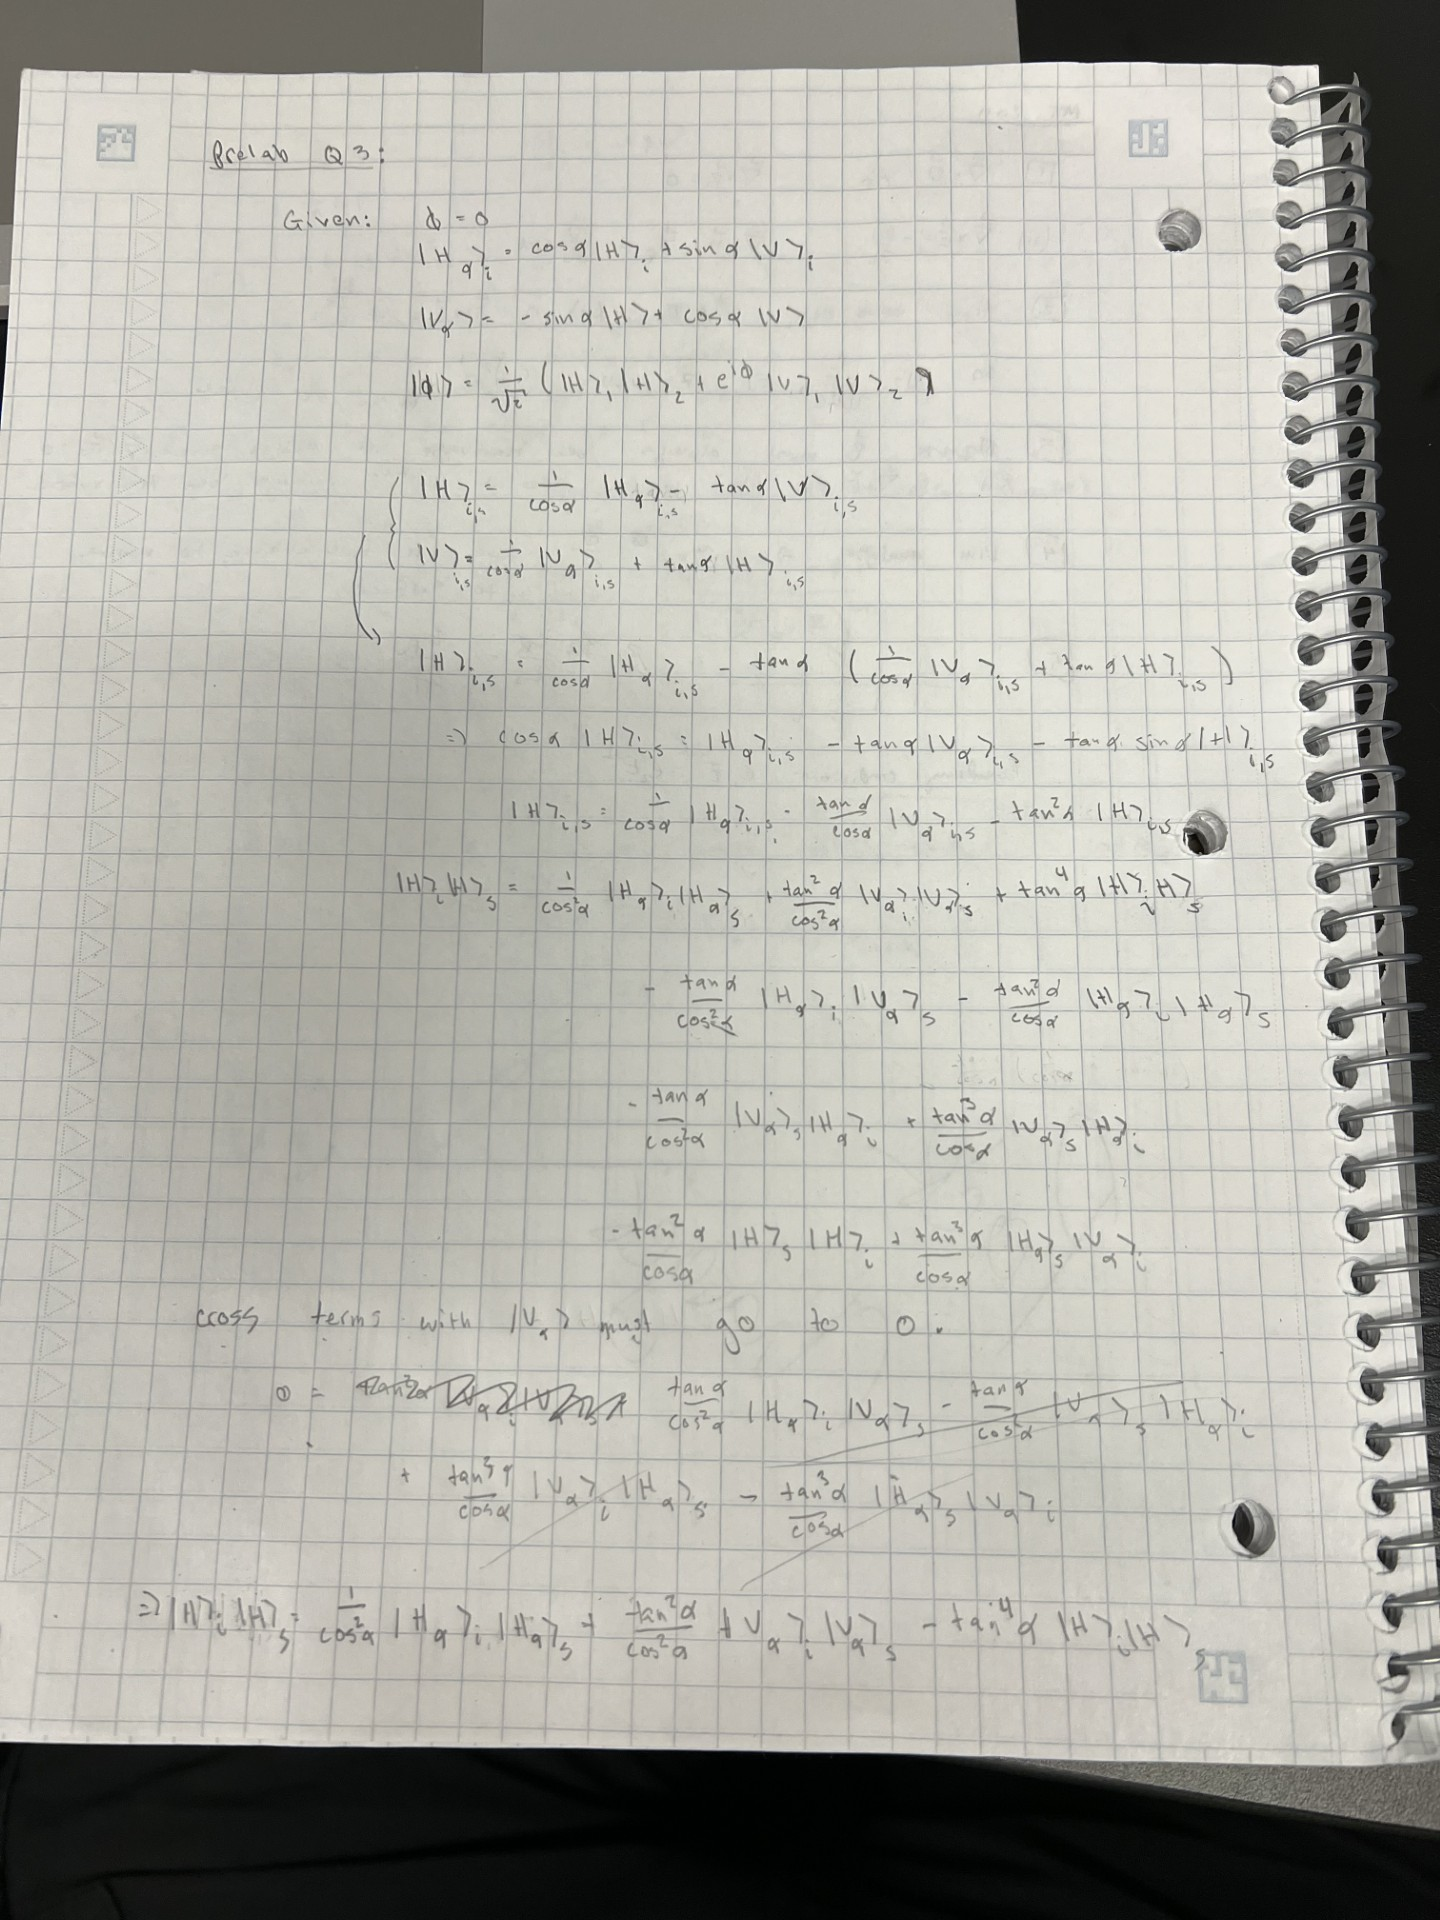 Prelab Q3:
Given: ϕ = 0
|H_α⟩_i = cosα|H⟩_i + sinα|V⟩_i
|V_α⟩ = - sinα|H⟩ + cosα|V⟩
|ϕ⟩ = 1/√2 (|H⟩_1|H⟩_2 + e^{iϕ}|V⟩_1|V⟩_2)
|H⟩_{i,s} = 1/cosα |H_α⟩_{i,s} - tanα|V⟩_{i,s}
|V⟩_{i,s} = 1/cosα |V_α⟩_{i,s} + tanα|H⟩_{i,s}
|H⟩_{i,s} = 1/cosα |H_α⟩_{i,s} - tanα (1/cosα |V_α⟩_{i,s} + tanα|H⟩_{i,s})
⇒ cosα|H⟩_{i,s} = |H_α⟩_{i,s} - tanα|V_α⟩_{i,s} - tanα sinα|H⟩_{i,s}
|H⟩_{i,s} = 1/cosα |H_α⟩_{i,s} - tanα/cosα |V_α⟩_{i,s} - tan²α |H⟩_{i,s}
|H⟩_i|H⟩_s = 1/cos²α |H_α⟩_i|H_α⟩_s + tan²α/cos²α |V_α⟩_i|V_α⟩_s + tan⁴α|H⟩_i|H⟩_s
- tanα/cos²α |H_α⟩_i|V_α⟩_s - tan²α/cosα |H_α⟩_i|H_α⟩_s
- tanα/cos²α |V_α⟩_s|H_α⟩_i + tan³α/cosα |V_α⟩_s|H_α⟩_i
- tan²α/cosα |H⟩_s|H⟩_i + tan³α/cosα |H_α⟩_s|V_α⟩_i
cross terms with |V_α⟩ must go to 0.
0 = tanα/cos²α |H_α⟩_i|V_α⟩_s - tanα/cos²α |V_α⟩_s|H_α⟩_i
+ tan³α/cosα |V_α⟩_i|H_α⟩_s - tan³α/cosα |H_α⟩_s|V_α⟩_i
⇒ |H⟩_i|H⟩_s = 1/cos²α |H_α⟩_i|H_α⟩_s + tan²α/cos²α |V_α⟩_i|V_α⟩_s - tan⁴α|H⟩_i|H⟩_s